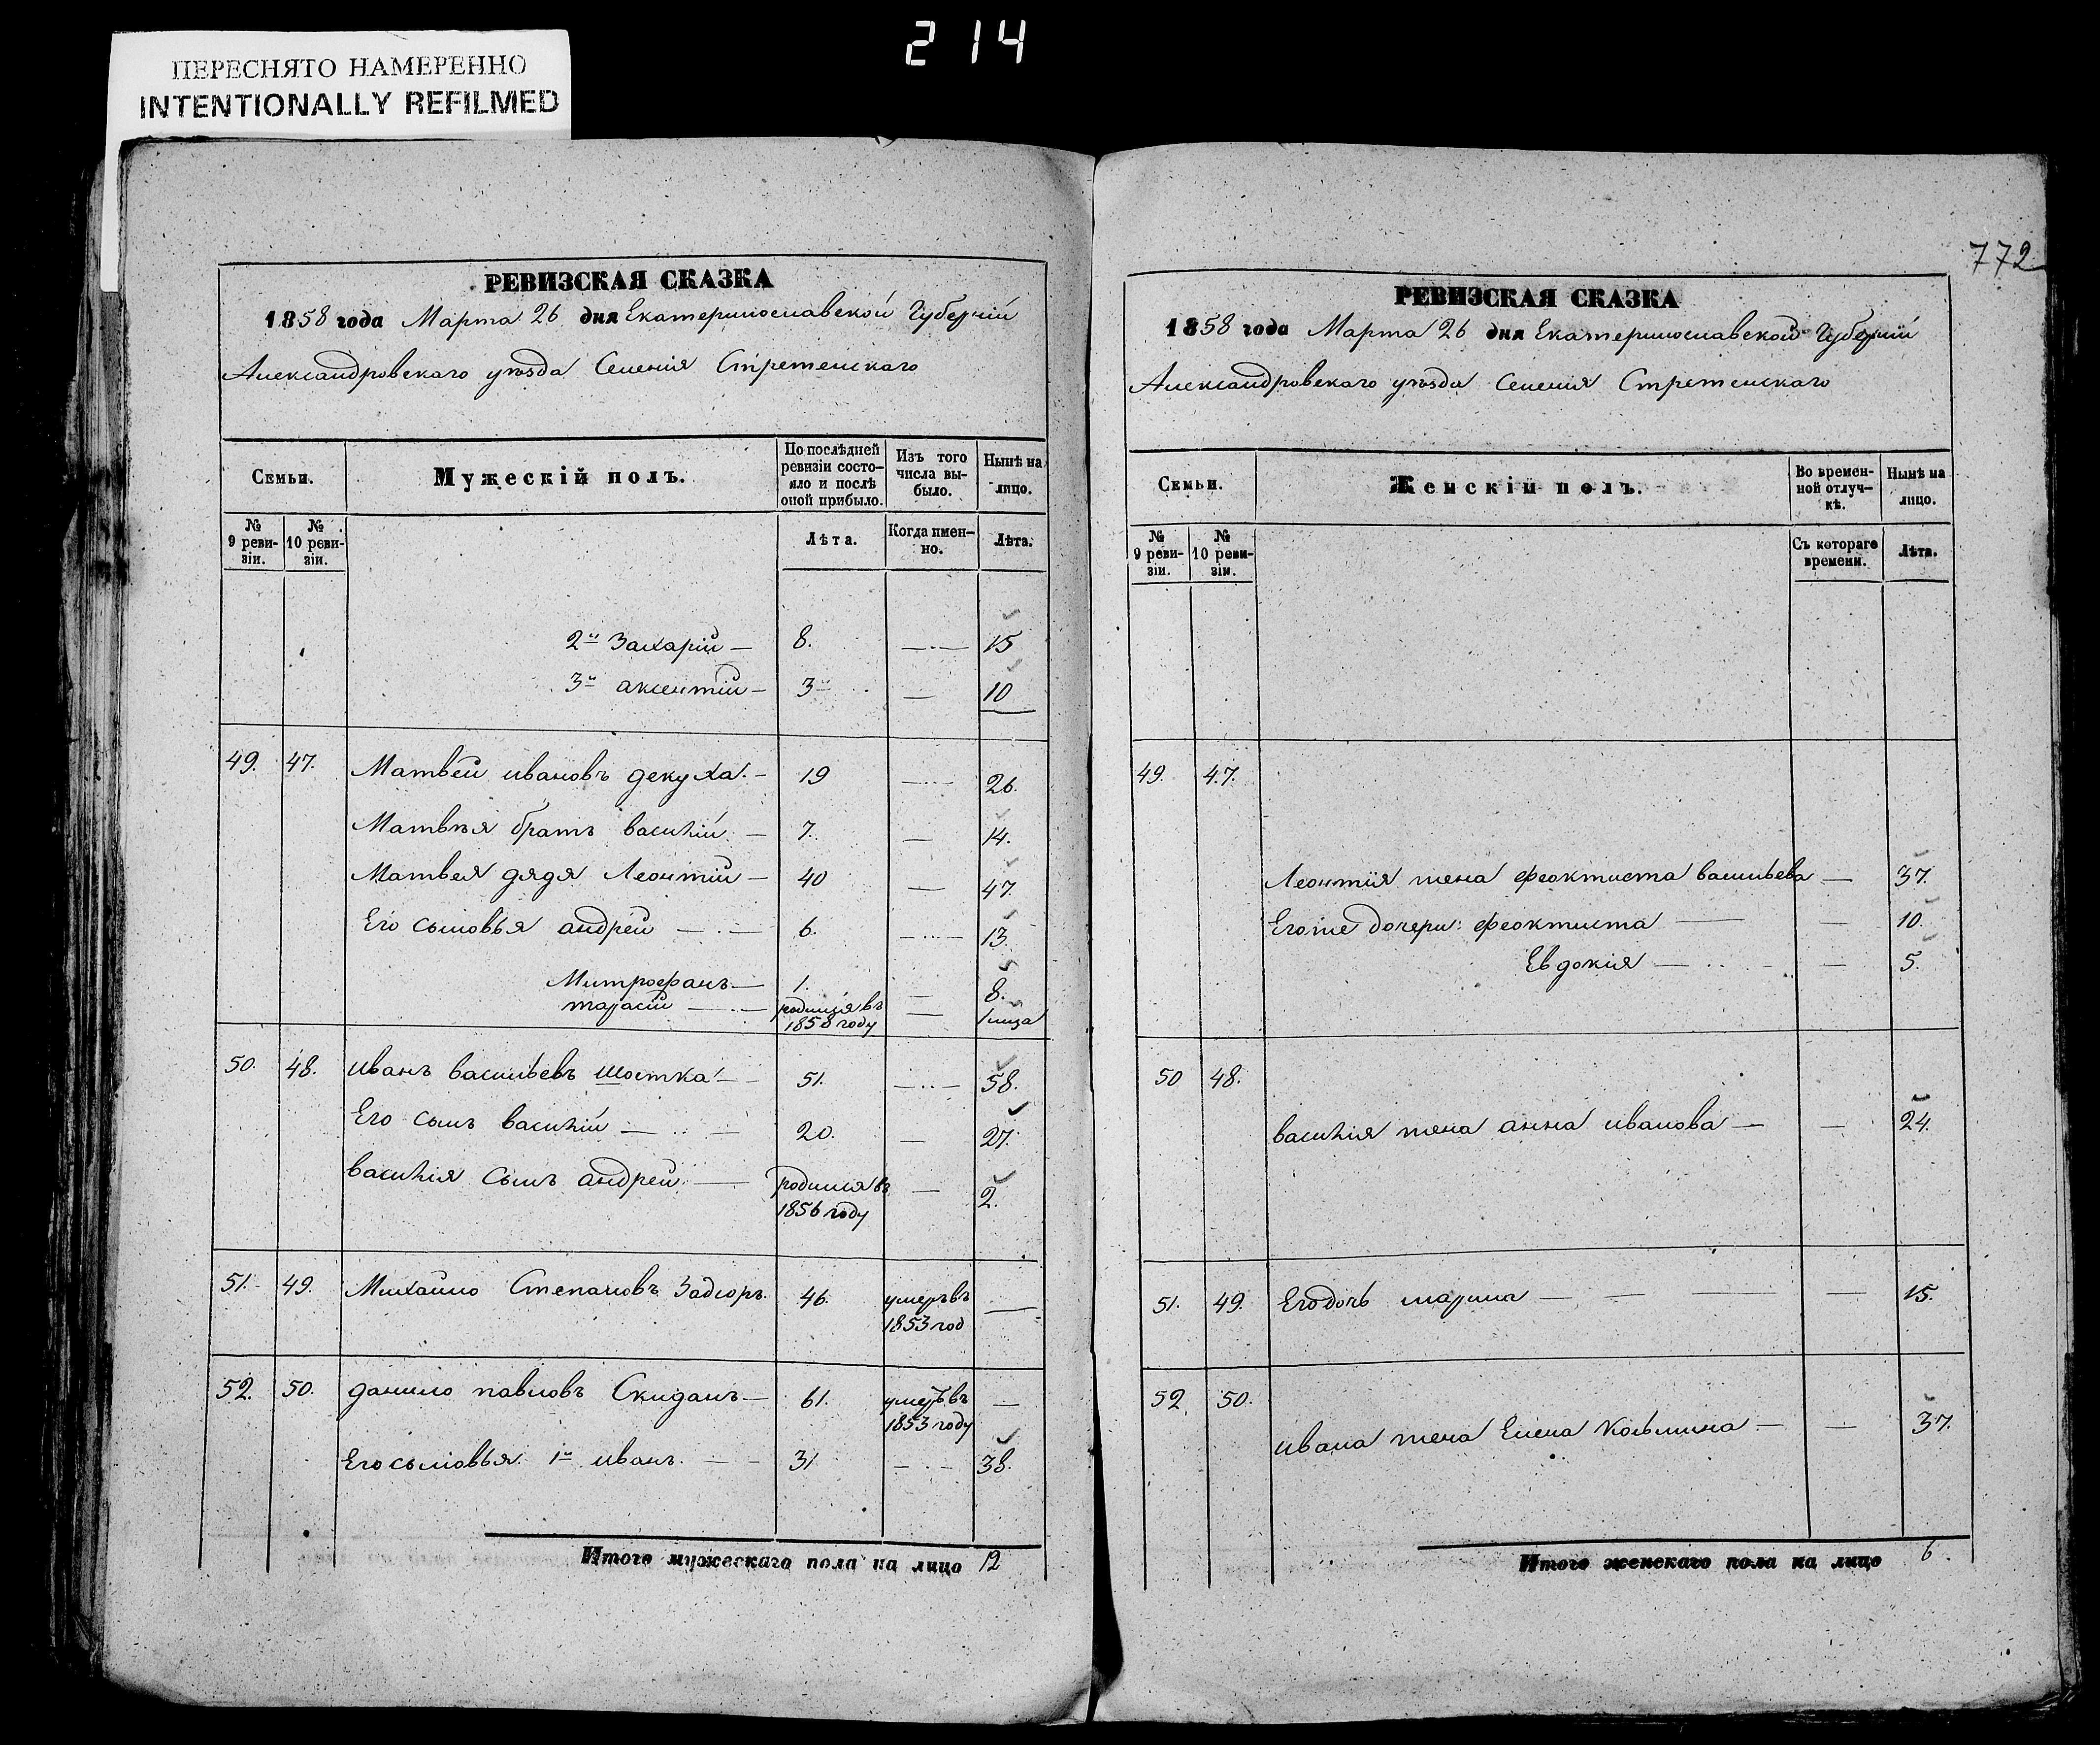 214
ПЕРЕСНЯТО НАМЕРЕННО
INTENTIONALLY REFILMED
РЕВИЗСКАЯ СКАЗКА
1858 года Марта 26 дня Екатеринославской Губерніи
Александровскаго уѣзда Селенія Стретенскаго
Семьи.
Мужескій полъ.
По послѣдней ревизіи состояло и послѣ оной прибыло.
Изъ того числа выбыло.
Нынѣ на лицо.
№ 9 ревизіи.
№ 10 ревизіи.
Лѣта.
Когда именно.
Лѣта.
2й Захарій — 8. — 15
3й Аксентій — 3 — 10
49. 47. Матвей Ивановъ Декуха — 19 — 26.
Матвѣя братъ Василій — 7. — 14.
Матвея дядя Леонтій — 40 — 47.
Его сыновья Андрей — 6. — 13.
Митрофанъ — 1. — 8.
Тарасій — родился въ 1858 году —
50. 48. Иванъ Васильевъ Шостка — 51. — 58.
Его сынъ Василій — 20. — 27.
Василія сынъ Андрей — родился въ 1856 году — 2.
51. 49. Михайло Степановъ 46. умеръ въ 1853 год —
52. 50. Данило Павловъ Скиданъ — 61. умеръ въ 1853 году —
Его сыновья 1й Иванъ — 31 — 38.
Итого мужескаго пола на лицо 12
772
РЕВИЗСКАЯ СКАЗКА
1858 года Марта 26 дня Екатеринославской Губерніи
Александровскаго уѣзда Селенія Стретенскаго
Семьи.
Женскій полъ.
Во временной отлучкѣ.
Нынѣ на лицо.
№ 9 ревизіи.
№ 10 ревизіи.
Съ котораго времени.
Лѣта.
49. 47.
Леонтія жена Феоктиста Васильева — — 37.
Его же дочери: Феоктиста — — 10.
Евдокія — — 5.
50 48.
Василія жена Анна Иванова — — 24.
51. 49. Его дочь Марина — — 15.
52 50.
Ивана жена Елена Козьмина — — 37.
Итого женскаго пола на лицо 6.